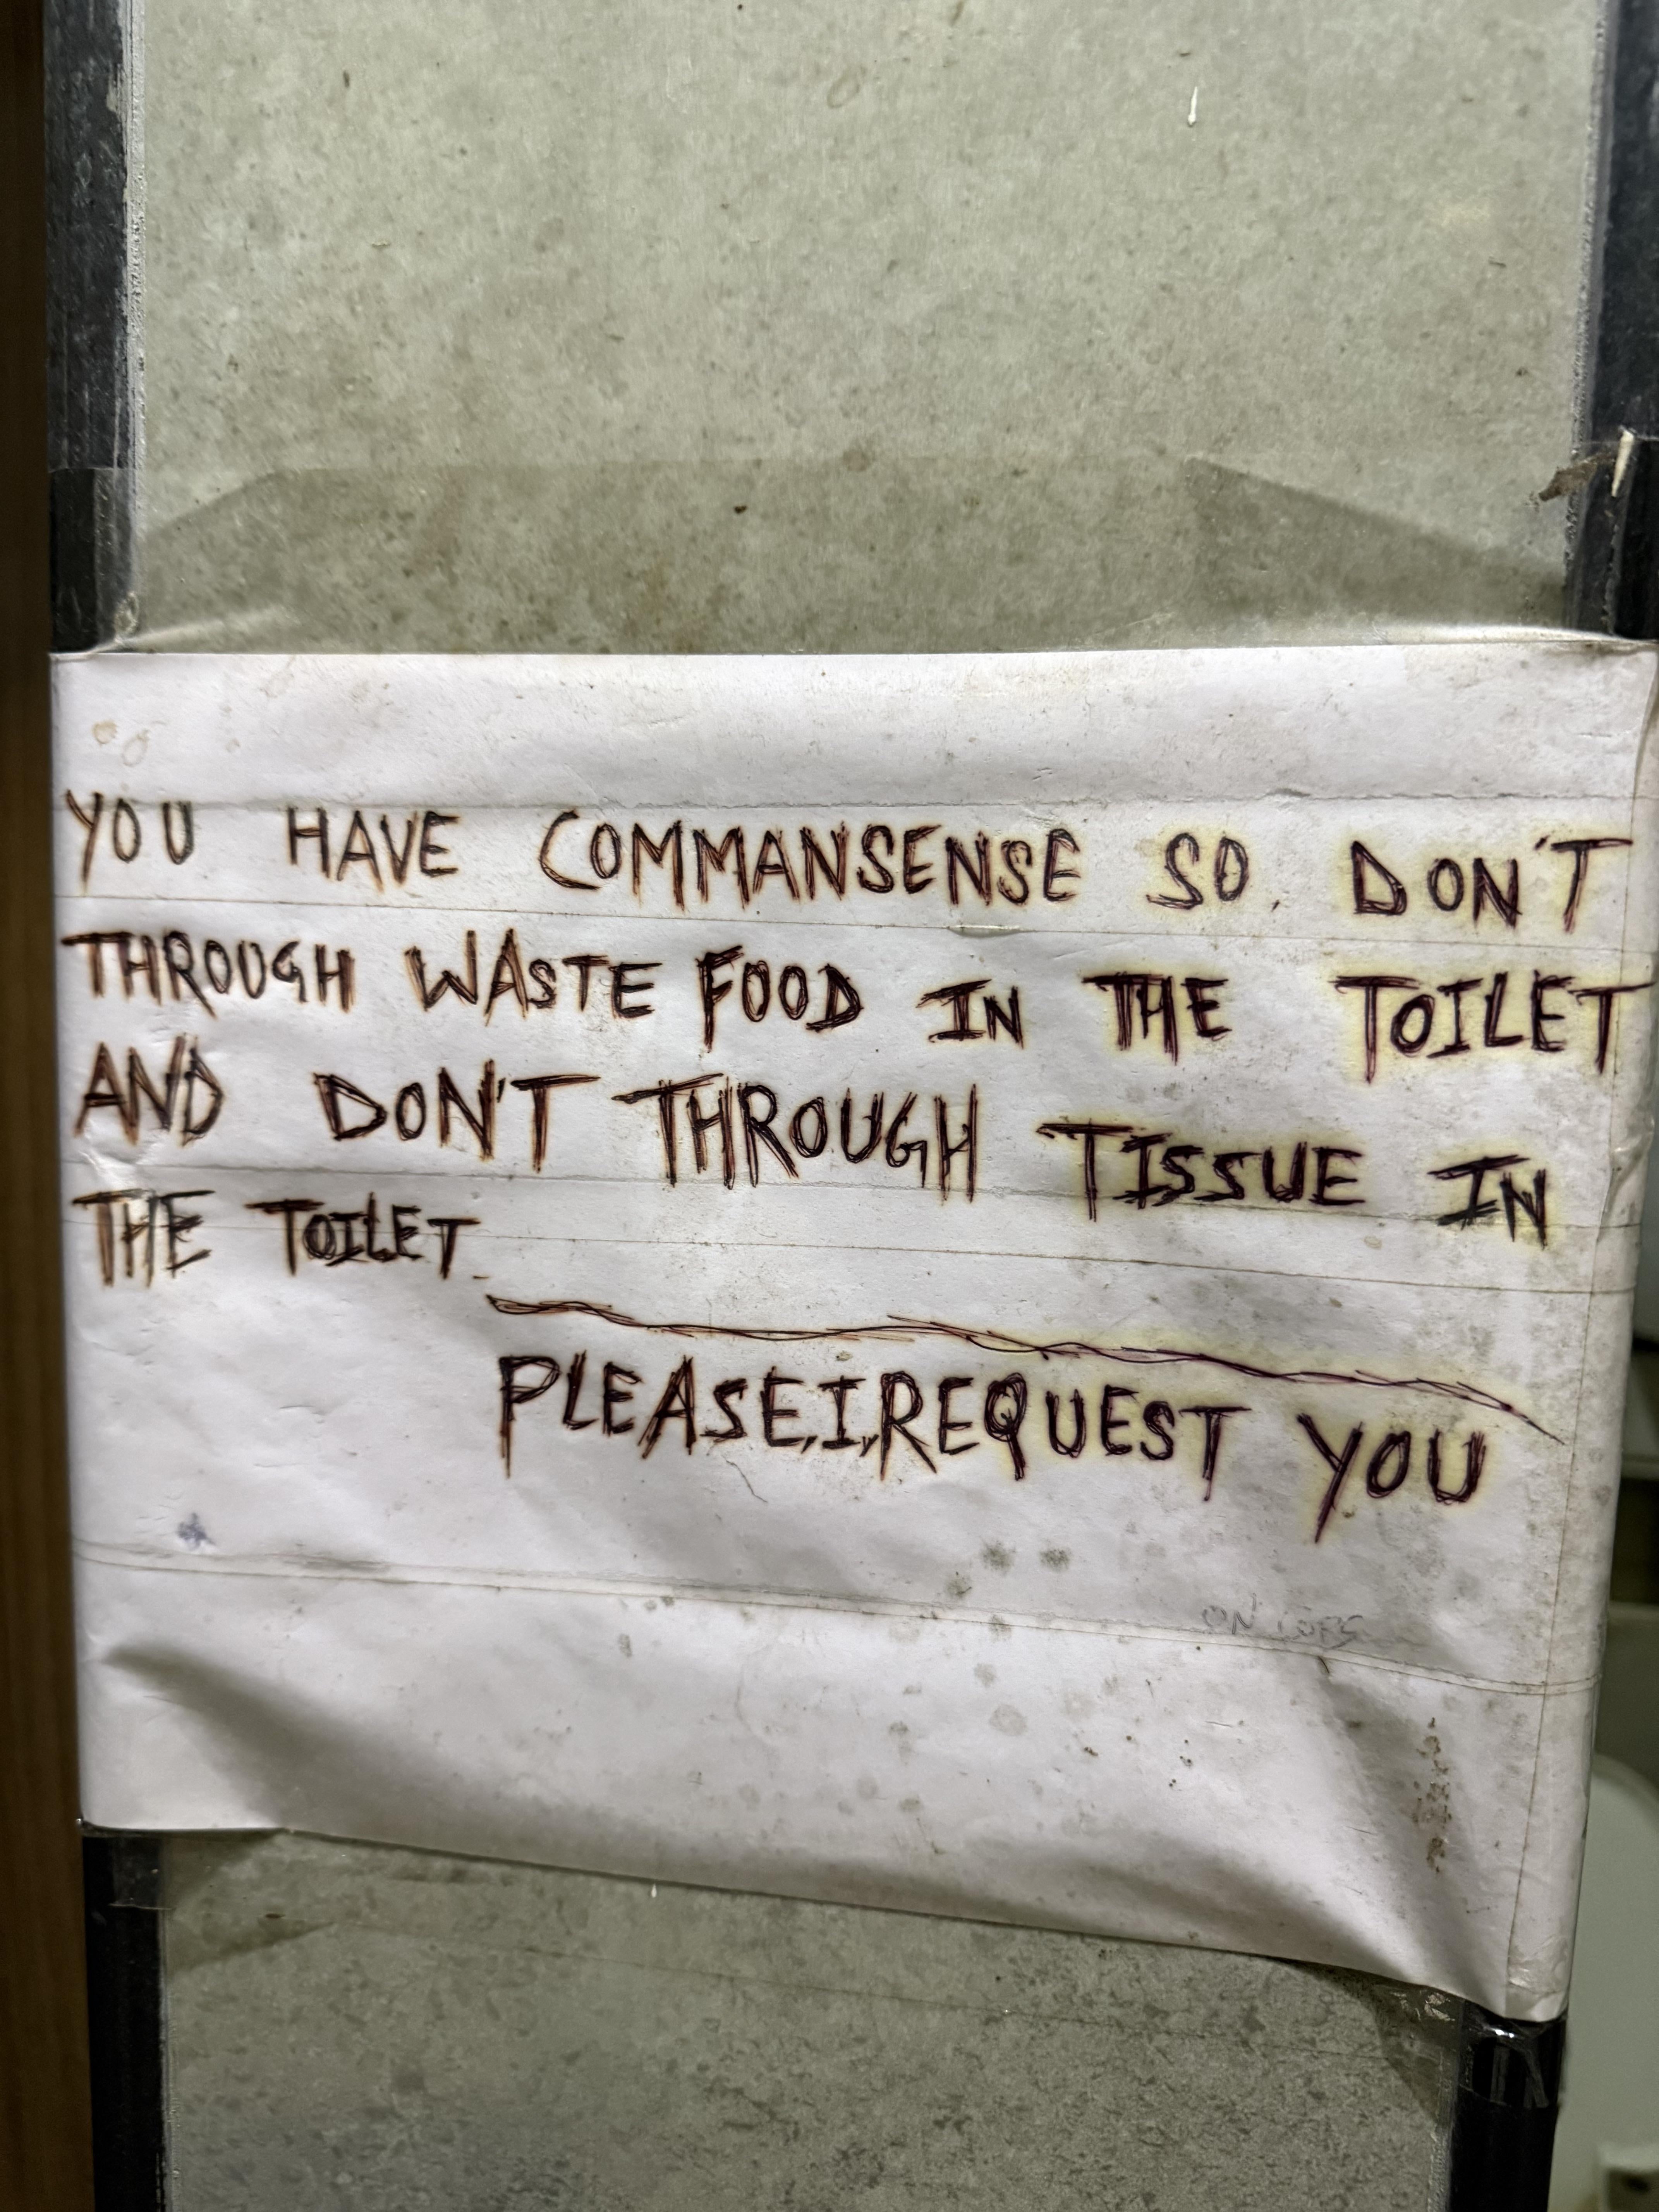 YOU HAVE COMMANSENSE SO. DON'T
THROUGH WASTE FOOD IN THE TOILET
AND DON'T THROUGH TISSUE IN
THE TOILET.
PLEASE,I,REQUEST YOU
ON